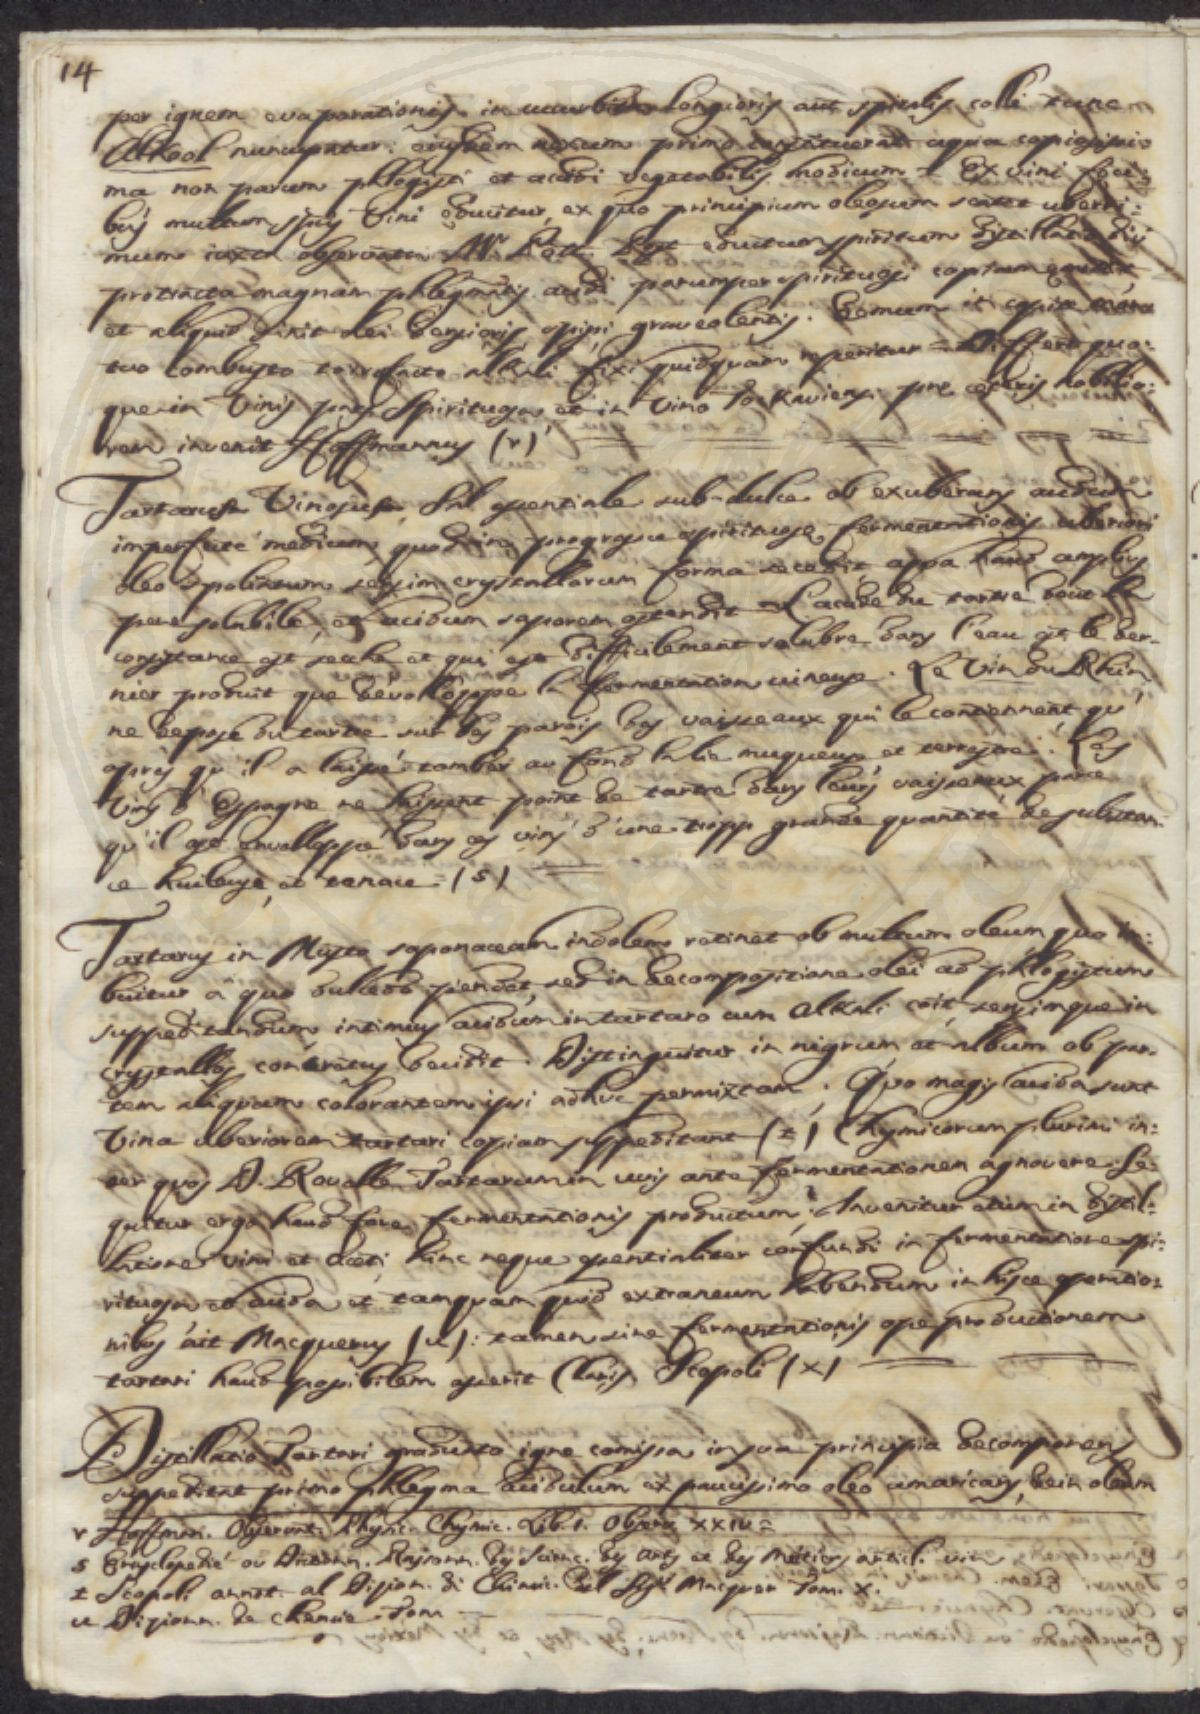 14
per ignem evaporationis in cucurbita longioris aut spiralis colli tunc
Alkool nuncupatur: ejusdem nexum primo constituerat aqua copiosissi
ma non parum phlogisti et acidi vegetabilis modicum = Ex vini foeci:
bus multum spus Vini educitur, ex quo principium oleosum scatet uberri:
mum iuxta observata Mr. Post eductum spiritum distillatio diu
protracta magnam phlegmatis acidi parumper spirituosi copiam
et aliquid finit olei densioris, spissi, graveolentis. Demum it copia
tuo combusto torrefacto alkali fixi quidquam reperitur = Differt quo:
que in Vinis pars Spirituosa, et in Vino Tockaviensi prae caeteris nobilio:
rem invenit Hoffmannus (r)
Tartarus Vinosus, Sal essentiale sub-dulce ob exuberans acidum
imperfecte medicum, quod in progressu spirituosae fermentationis uberiori
oleo spoliatum sensim crystallorum forma secedit, aqua haud amplius
pene solubile, et acidum saporem ostendit = L'acide du tartre dout la
consistance est seche et qui est difficilement soluble dans l'eau est le der-
nier produit que développe la fermentation vineuse. Le Vin du Rhin
ne depose du tartre sur les parois des vaisseaux qui le contiennent qu'
après qu'il a laissé tomber au fond la lie muqueuse et terrestre. Les
Vins d'Espagne ne laissent point de tartre dans leurs vaisseaux parce
qu'il est enveloppé dans ces vins d'une tropp grande quantité de substan-
ce huileuse, et tenace = (s)
Tartarus in Musto saponaceam indolem retinet ob multum oleum quo im:
buitur a quo dulcedo pendet, sed in decompositione olei ad phlogistum
suppeditandum intimius acidum in tartaro cum Alkali coit, sensimque in
crystallos concretus decidit. Distinguitur in nigrum et album ob par-
tem aliquam colorantem ipsi adhuc permixtam. Quo magis acida sunt
Vina uberiorem tartari copiam suppeditant (t) Chymicorum plurimi in:
ter quos D. Rouelle Tartarum in uvis ante fermentationem agnovere: Se:
quitur ergo haud fore fermentationis productum; Invenitur etiam in distil:
latione Vini et Aceti, hinc neque essentialiter confundi in fermentatione spi:
rituosa et acida et tamquam quid extraneum habendum in hisce operatio:
nibus ait Macquerus (u): tamen sine fermentationis ope productionem
tartari haud possibilem asserit Claris. Scopoli (x)
Distillatio Tartari graduato igne comissa in sua principia decomponens
suppeditat primo phlegma acidulum ex paucissimo oleo amaricans, dein oleum
r Hoffman. Observat. Physic. Chymic. Lib. 1. Observ. XXIV =
s Encyclopedie ou Dictionn. Raisonn. des Scienc. des Arts et des Métiers articl. vin
t Scopoli annot. al Dizion. di Chimic. del Sigr. Macquer Tom. X.
u Dizionn. de Chemie Tom